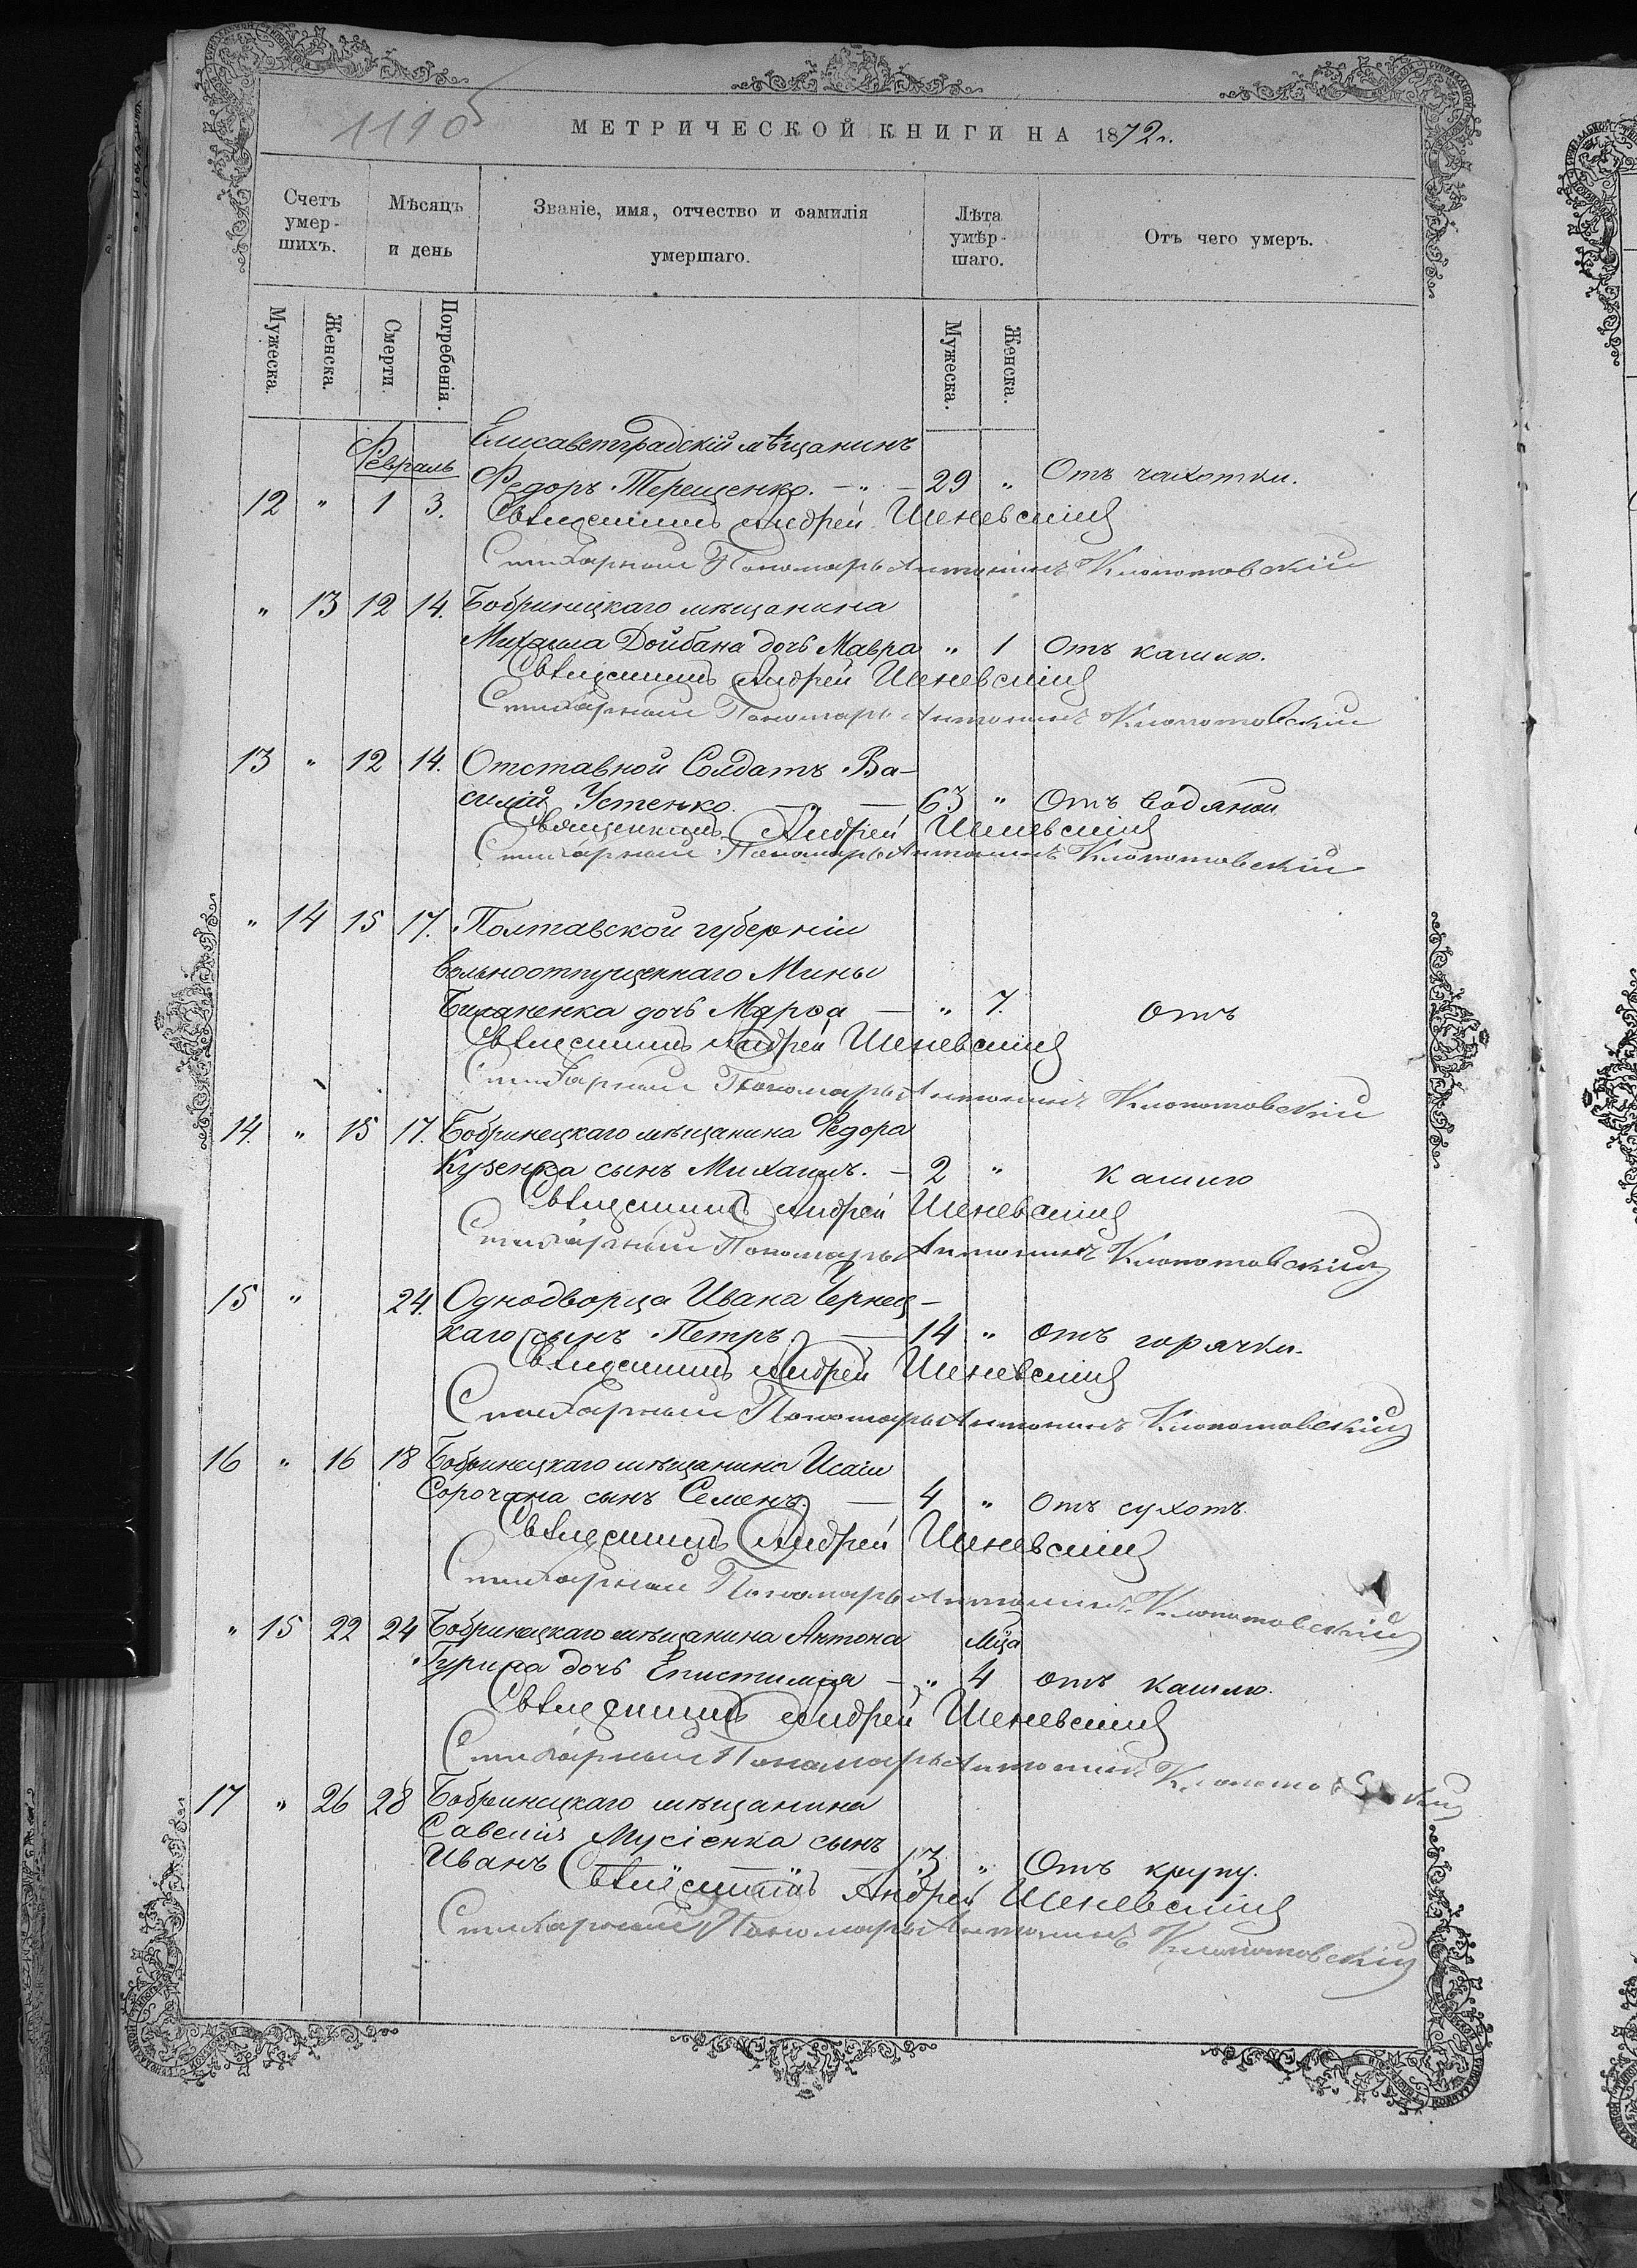 11905
МЕТРИЧЕСКОЙ КНИГИ НА 1872 г.
Счетъ умер-шихъ.
Мѣсяцъ и день
Званіе, имя, отчество и фамилія умершаго.
Лѣта умѣр-шаго.
Отъ чего умеръ.
Мужеска.
Женска.
Смерти
Погребенія.
Мужеска.
Женска.
Февраль
Елисаветградскій мѣщанинъ
12 " 1 3. Федоръ Терещенко. — " — 29 " Отъ чахотки.
Священникъ Андрей
Стихарный Пономарь Антонинъ Клопотовскій
" 13 12 14. Бобринецкаго мѣщанина
Михаила Дойбана дочь Мавра " 1 Отъ кашлю.
Священникъ Андрей
Стихарный Пономарь Антонинъ Клопотовскій
13 " 12 14. Отставной Солдатъ Ва-
силій Устенко. — — 63 " Отъ водяной
Священникъ Андрей
Стихарный Пономарь Антонинъ Клопотовскій
" 14 15 17. Полтавской губерніи
вольноотпущеннаго Мины
дочь Марѳа — " 7. Отъ
Священникъ Андрей
Стихарный Пономарь Антонинъ Клопотовскій
14. " 15 17. Бобринецкаго мѣщанина Федора
Кузенка сынъ Михаилъ. — 2 " кашлю
Священникъ Андрей
Стихарный Пономарь Антонинъ Клопотовскій
15 " 24. Однодворца Ивана Чернец-
каго сынъ Петръ. — 14 " отъ горячки.
Священникъ Андрей
Стихарный Пономарь Антонинъ Клопотовскій
16 " 16 18 Бобринецкаго мѣщанина Исаіи
Сорочана сынъ Семенъ. — 4 " Отъ сухотъ
Священникъ Андрей
Стихарный Пономарь Антонинъ Клопотовскій
" 15 22 24 Бобринецкаго мѣщанина Антона Мца
дочь Епистимія — " 4 отъ кашлю.
Священникъ Андрей
Стихарный Пономарь Антонинъ Клопотовскій
17 " 26 28 Бобринецкаго мѣщанина
Савелія Мусіенка сынъ
Иванъ — 13 " Отъ крупу.
Священникъ Андрей
Стихарный Пономарь Антонинъ Клопотовскій